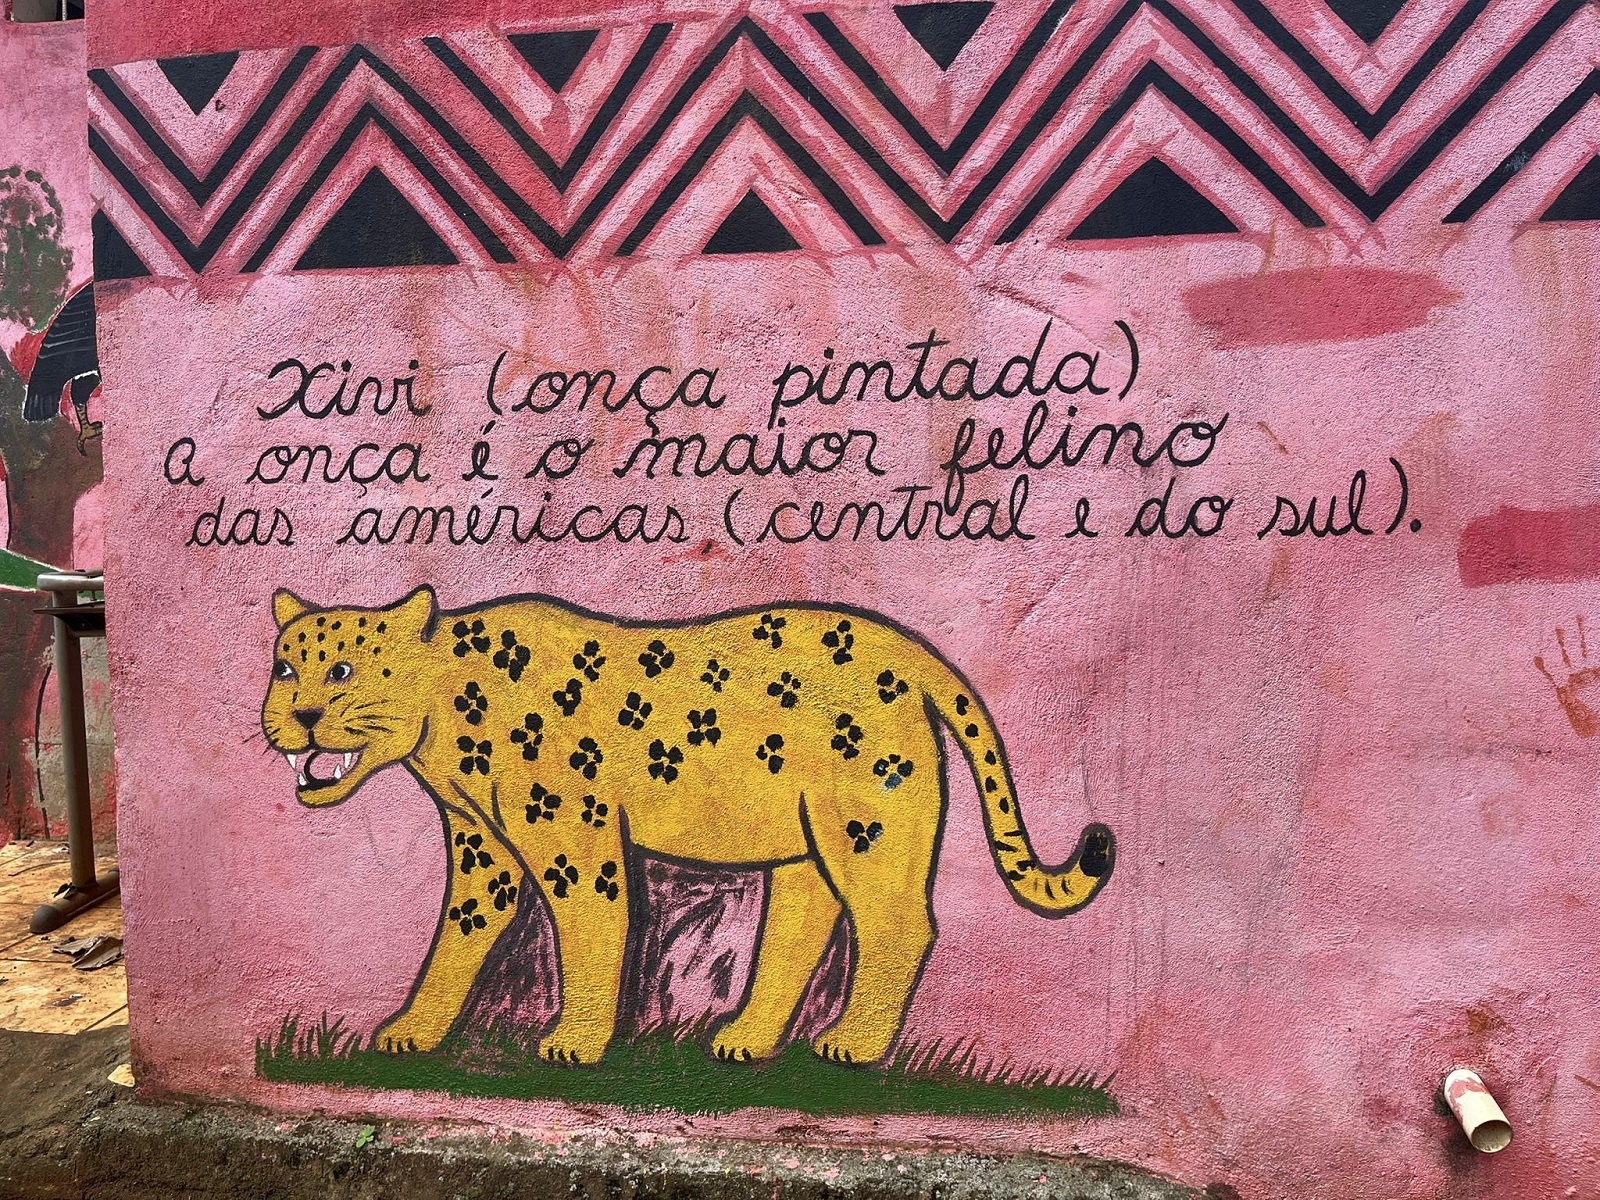 Xivi (onça pintada)
A onça é o maior felino
das américas (central e do sul).